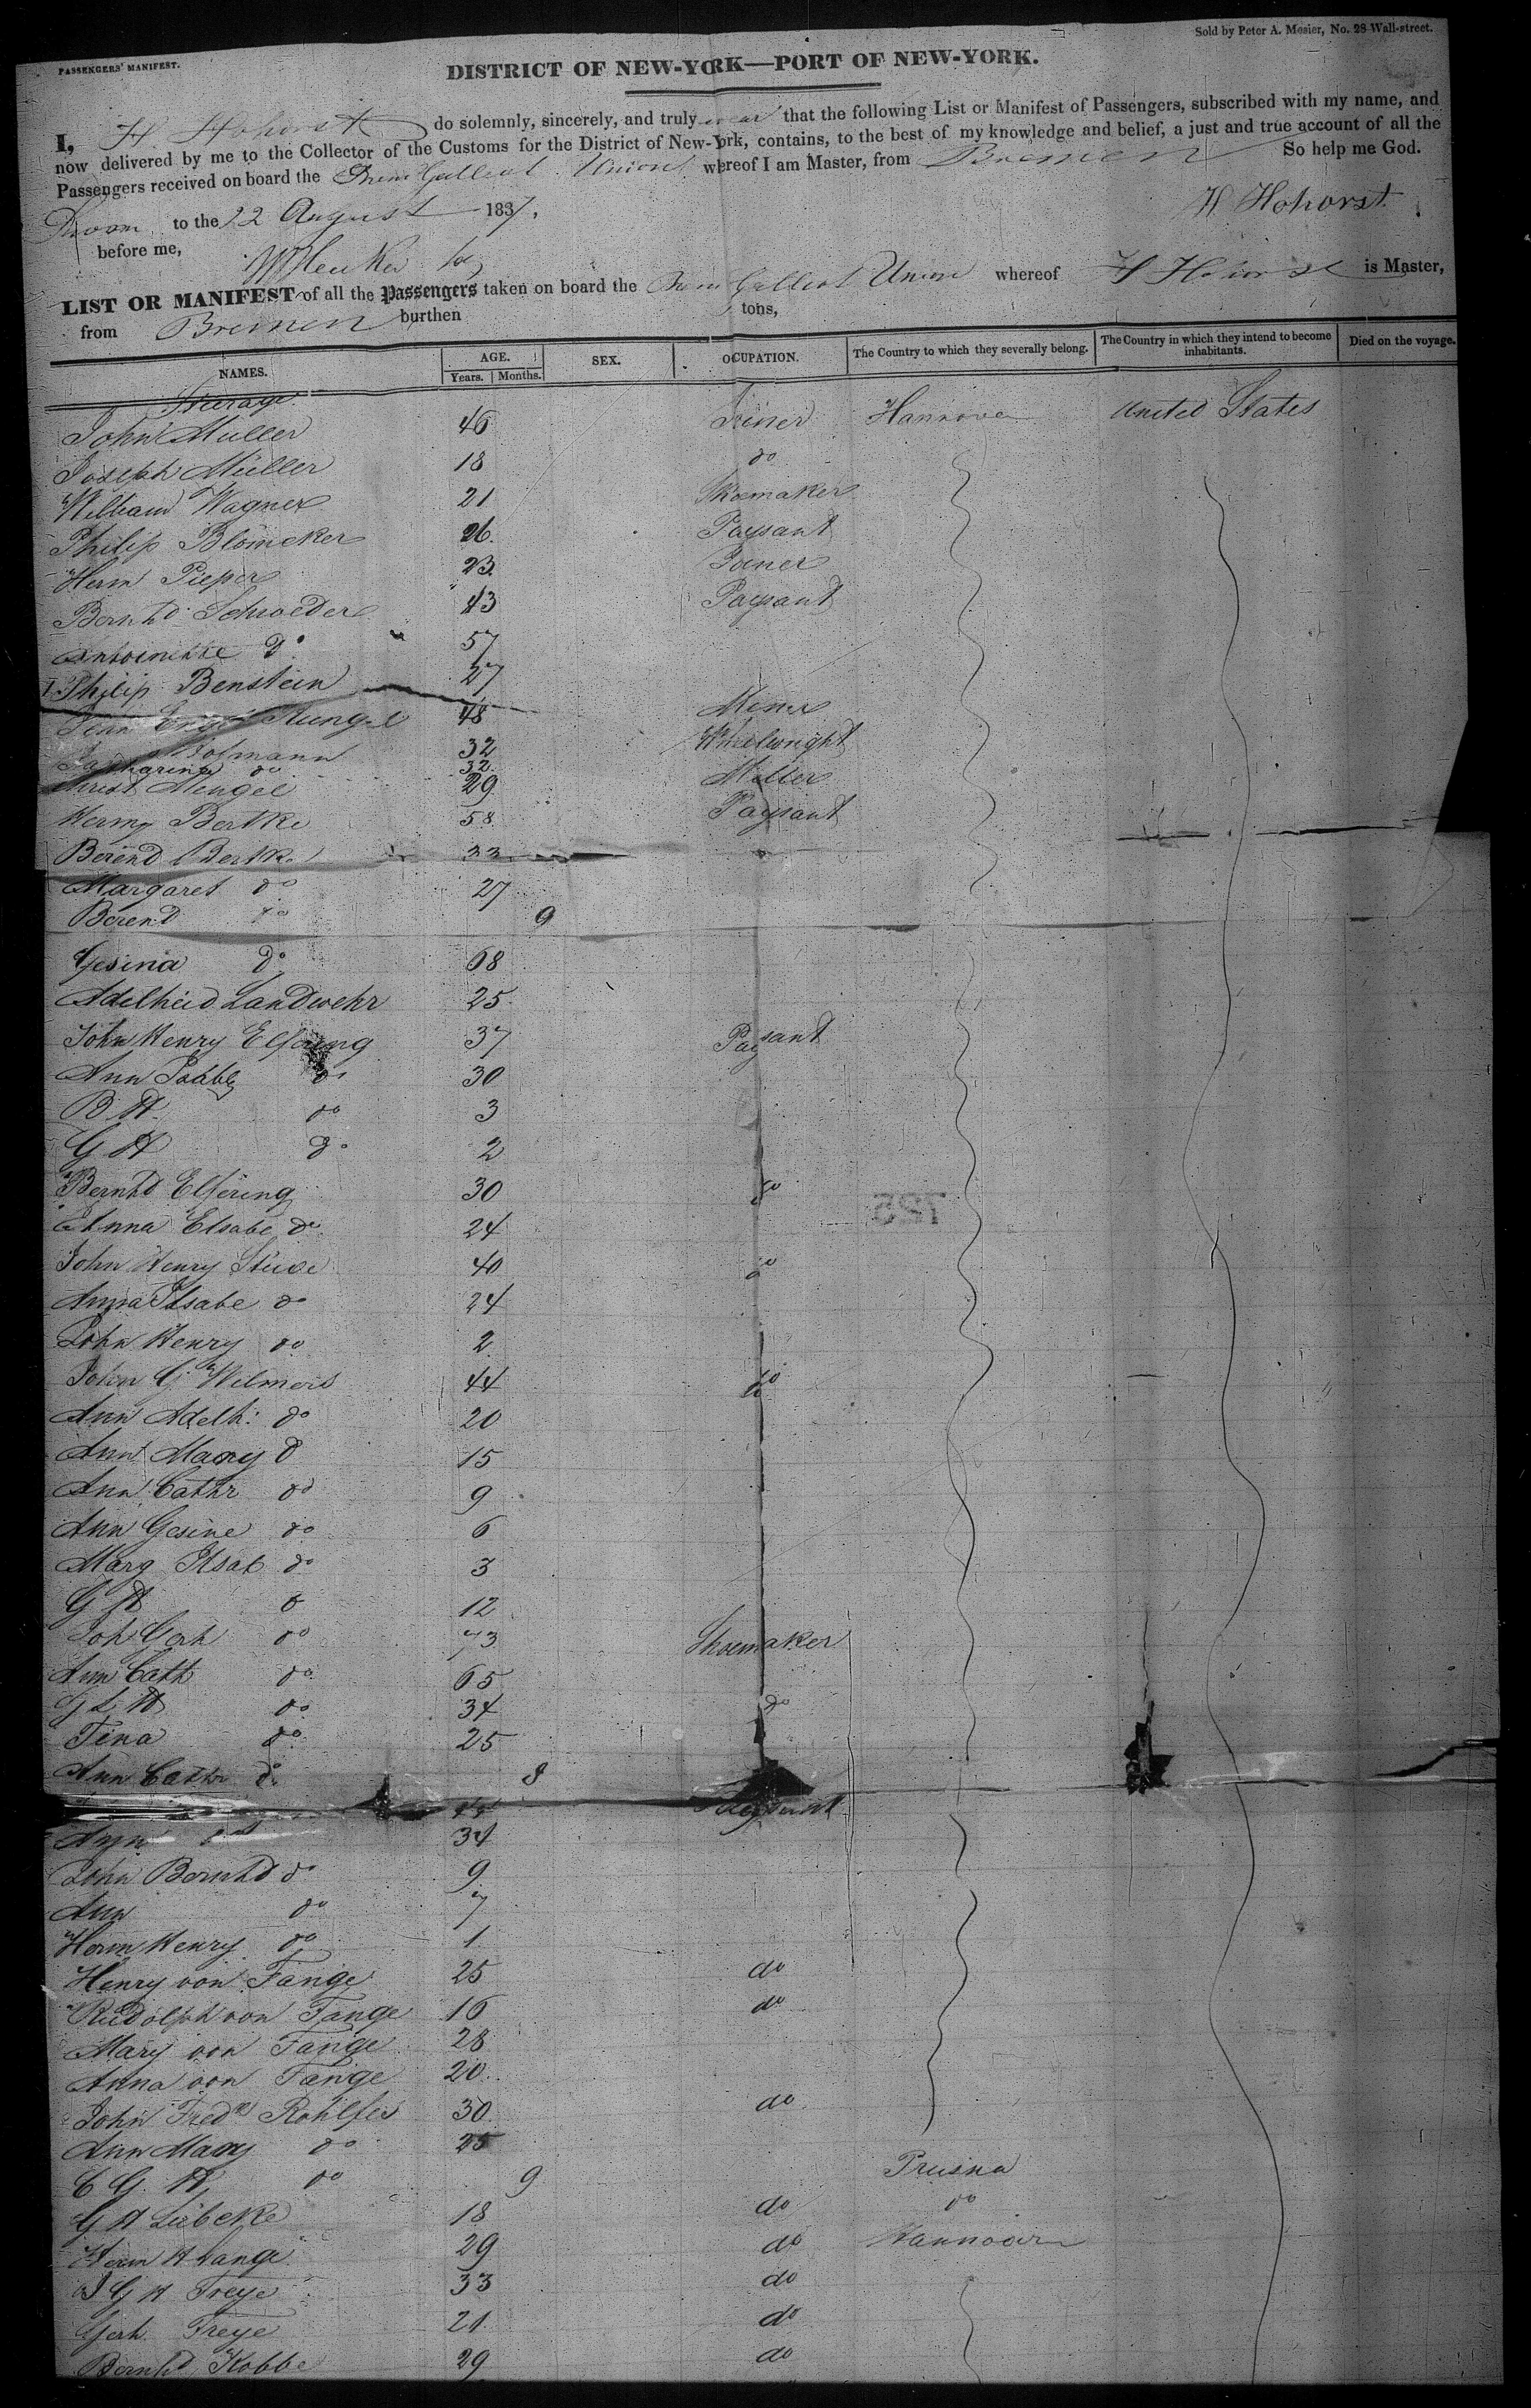 Sold by Peter A. Mesier, No. 28 Wall-street.
PASSENGERS' MANIFEST.
DISTRICT OF NEW-YORK—PORT OF NEW-YORK.
I, H. Hohorst do solemnly, sincerely, and truly swear that the following List or Manifest of Passengers, subscribed with my name, and
now delivered by me to the Collector of the Customs for the District of New-York, contains, to the best of my knowledge and belief, a just and true account of all the
Passengers received on board the Brem Galliot Union whereof I am Master, from Bremen So help me God.
Sworn to the 22 August 1837, H Hohorst
before me,
LIST OR MANIFEST of all the Passengers taken on board the Brem Galliot Union whereof H Hohorst is Master,
from Bremen burthen tons,
NAMES. AGE. Years. Months. SEX. OCUPATION. The Country to which they severally belong. The Country in which they intend to become inhabitants. Died on the voyage.
Steerage
John Muller 46 Joiner Hannover United States
Joseph Müller 18 do
William Wagner 21 Shoemaker
Philip Blömcker 26 Paysant
Herm Pieper 23 Joiner
Bernhd Schroeder 43 Paysant
Antoinette Do 57
Philip Benstein 27
Runge 48 Miner
Bolmann 32 Whielwright
Catharina do 32
Christ Mengel 29 Miller
Herm Bertke 58 Paysant
Berend Bertke 33
Margaret do 27
Berend do 9
Gesina Do 68
Adelheid Landwehr 25
John Henry Elfering 37 Paysant
Ann do 30
B H do 3
G H do 2
Bernhd Elfering 30 do
Anna Elsabe do 24
John Henry Stüve 40 do
Anna Ilsabe do 24
John Henry do 2
John G Wilmers 44 do
Ann Adelh: do 20
Ann Mary d 15
Ann Cathr do 9
Ann Gesine do 6
Marg Ilsab do 3
G H do 12
Joh Gerh do 73 Shoemaker
Ann Cath do 65
G L H do 34 do
Tina do 25
Ann Cathr do 8
44 Paysant
Ann do 34
John Bernhd do 9
Ann do 7
Herm Henry do 1
Henry von Fange 25 do
Rudolph von Fange 16 do
Mary von Fange 28
Anna von Fange 20
John Fredk Rohlfes 30 do
Ann Mary do 25
C G. H do 9 Prusna
G H Lübcke 18 do do
Herm H Lange 29 do Hannover
J G H Freye 33 do
Gerh Freye 21 do
Bernhd Kobbe 29 do